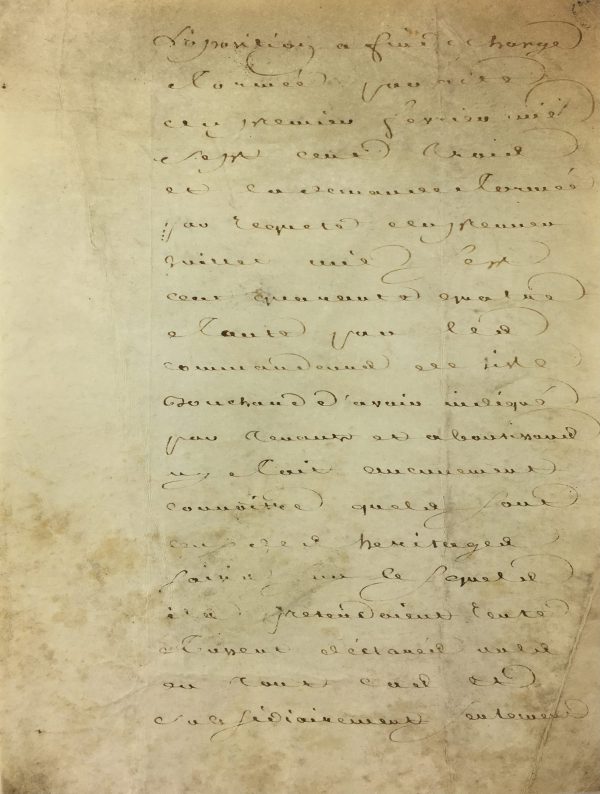 opposition a fin de charge
formée par
du premier février mil
sept cent
et la demande formée
par requete du premier
Juillet mil sept
cent quarante quatre
faute par led
commandeur de lisle
Bouchard d'avoir indiqué
par tenants et aboutissans
ny fait aucunement
connoître quels sont
les heritages
saisis sur lesquels
ils pretendoient rente
fussent déclarés nuls
en tout cas et
subsidiairement